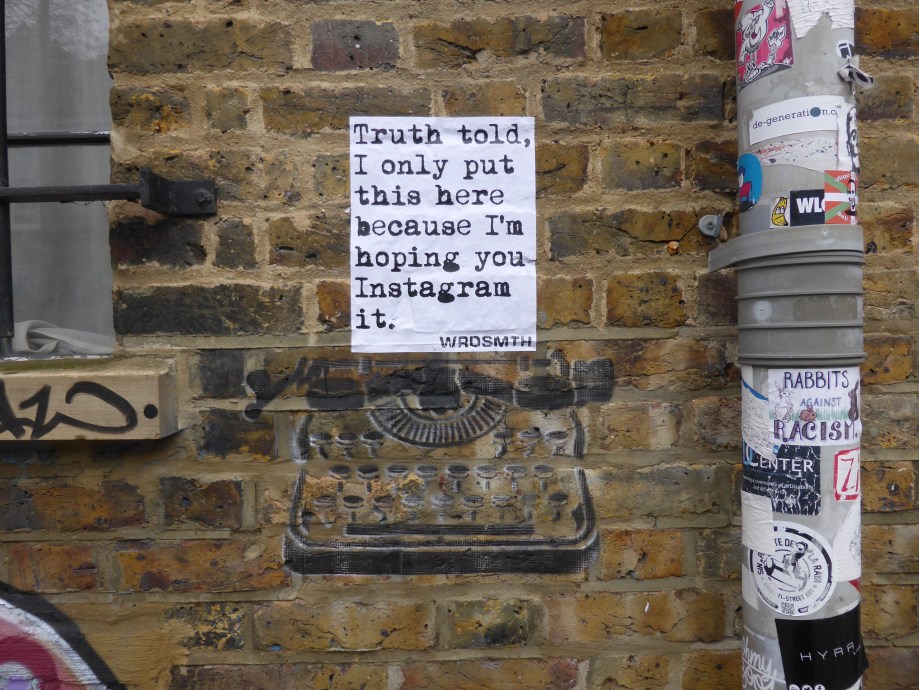 Truth told,
I only put
this here
because I'm
hoping you
Instagram
it.
WRDSMTH
de-generation.c
WL
RABBITS
AGAINST
RACISM.
CENTER
TI-STREET ART
HYRR